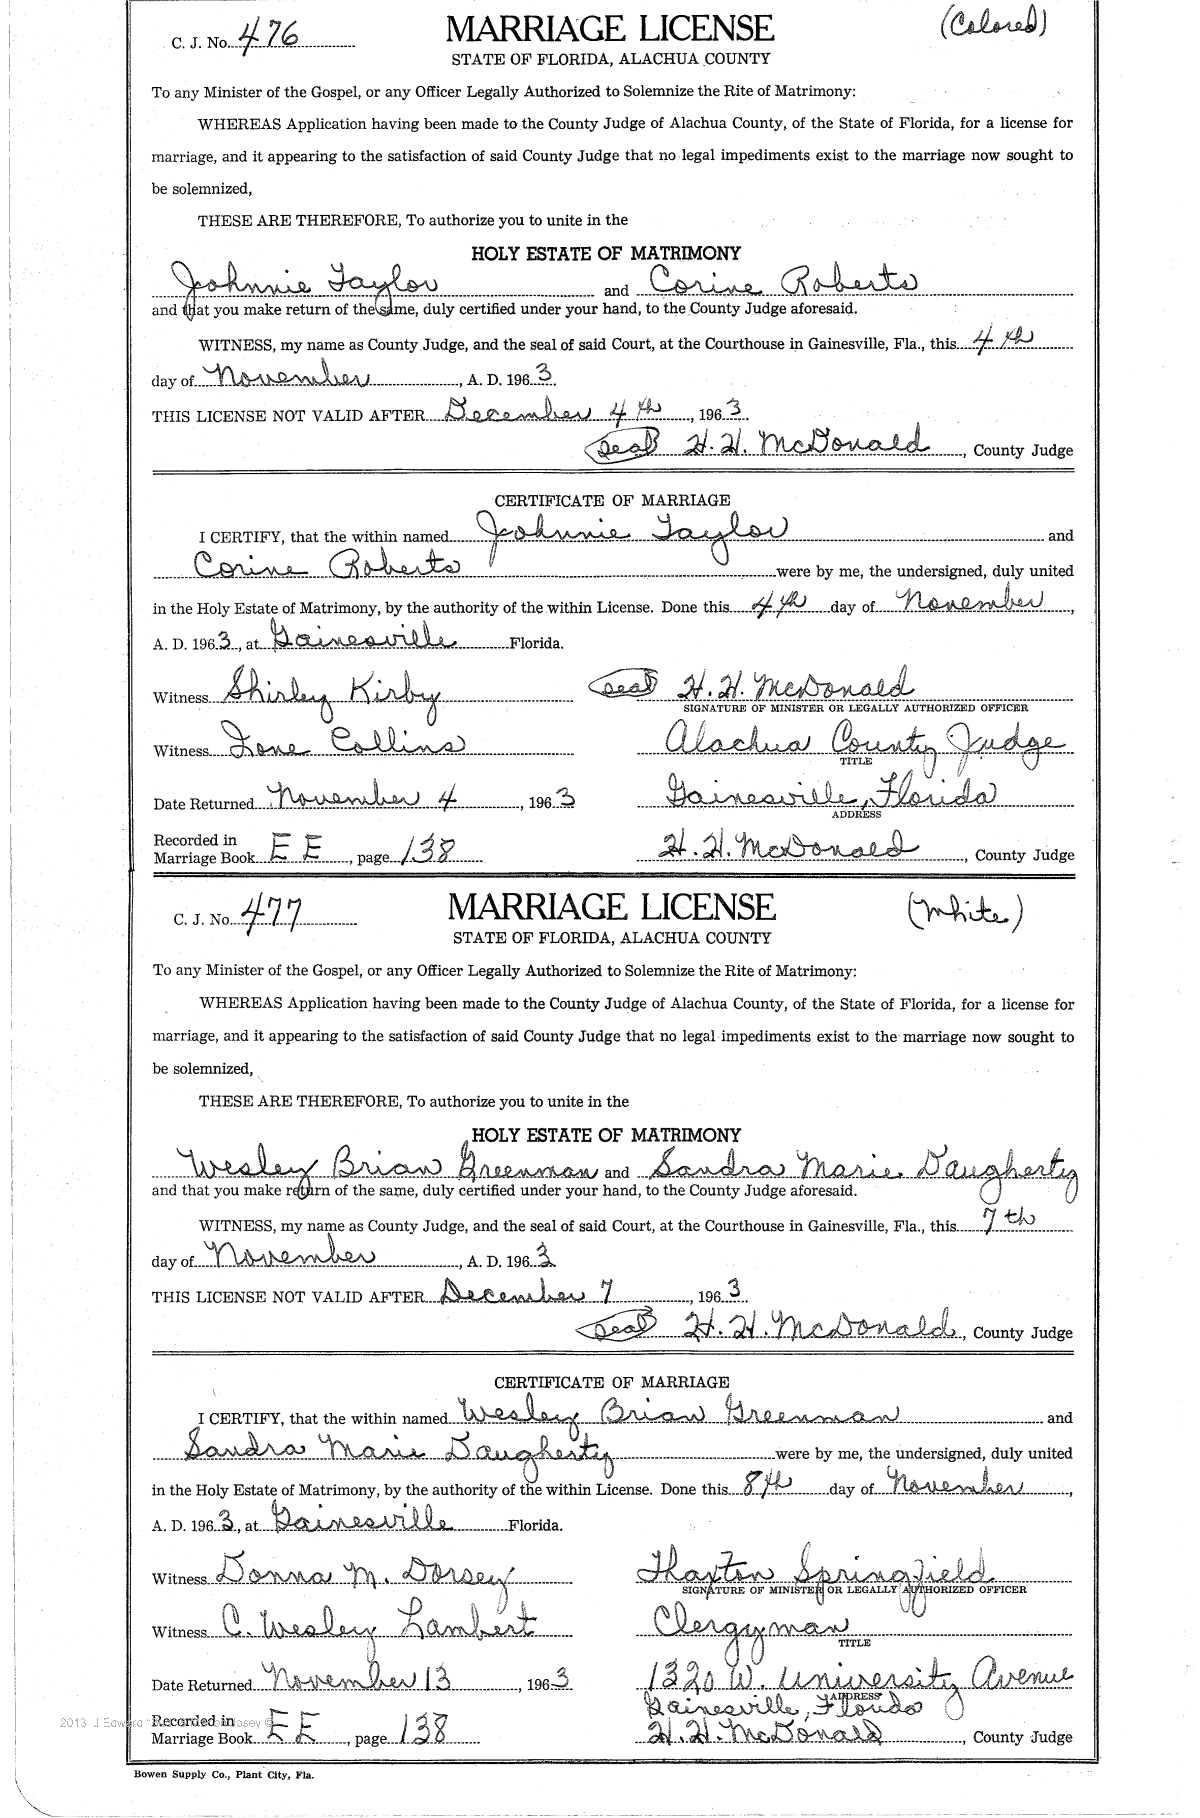 C. J. No. 476 MARRIAGE LICENSE (Colored)
STATE OF FLORIDA, ALACHUA COUNTY
To any Minister of the Gospel, or any Officer Legally Authorized to Solemnize the Rite of Matrimony:
WHEREAS Application having been made to the County Judge of Alachua County, of the State of Florida, for a license for
marriage, and it appearing to the satisfaction of said County Judge that no legal impediments exist to the marriage now sought to
be solemnized,
THESE ARE THEREFORE, To authorize you to unite in the
HOLY ESTATE OF MATRIMONY
Johnnie Taylor and Corine Roberts
and that you make return of the same, duly certified under your hand, to the County Judge aforesaid.
WITNESS, my name as County Judge, and the seal of said Court, at the Courthouse in Gainesville, Fla., this 4th
day of November, A. D. 1963.
THIS LICENSE NOT VALID AFTER December 4th, 1963.
Seal H. H. McDonald, County Judge
CERTIFICATE OF MARRIAGE
I CERTIFY, that the within named Johnnie Taylor and
Corine Roberts were by me, the undersigned, duly united
in the Holy Estate of Matrimony, by the authority of the within License. Done this 4th day of November,
A. D. 1963, at Gainesville Florida.
Witness Shirley Kirby Seal H. H. McDonald
SIGNATURE OF MINISTER OR LEGALLY AUTHORIZED OFFICER
Witness Ione Collins Alachua County Judge
TITLE
Date Returned November 4, 1963 Gainesville, Florida
ADDRESS
Recorded in
Marriage Book EE, page 138 H. H. McDonald, County Judge
C. J. No. 477 MARRIAGE LICENSE (White)
STATE OF FLORIDA, ALACHUA COUNTY
To any Minister of the Gospel, or any Officer Legally Authorized to Solemnize the Rite of Matrimony:
WHEREAS Application having been made to the County Judge of Alachua County, of the State of Florida, for a license for
marriage, and it appearing to the satisfaction of said County Judge that no legal impediments exist to the marriage now sought to
be solemnized,
THESE ARE THEREFORE, To authorize you to unite in the
HOLY ESTATE OF MATRIMONY
Wesley Brian Greenman and Sandra Marie Daugherty
and that you make return of the same, duly certified under your hand, to the County Judge aforesaid.
WITNESS, my name as County Judge, and the seal of said Court, at the Courthouse in Gainesville, Fla., this 7th
day of November, A. D. 1963
THIS LICENSE NOT VALID AFTER December 7, 1963.
Seal H. H. McDonald, County Judge
CERTIFICATE OF MARRIAGE
I CERTIFY, that the within named Wesley Brian Greenman and
Sandra Marie Daugherty were by me, the undersigned, duly united
in the Holy Estate of Matrimony, by the authority of the within License. Done this 8th day of November,
A. D. 1963, at Gainesville Florida.
Witness Donna M. Dorsey Thaxton Springfield
SIGNATURE OF MINISTER OR LEGALLY AUTHORIZED OFFICER
Witness C. Wesley Lambert Clergyman
TITLE
Date Returned November 13, 1963 1320 W. University Avenue
ADDRESS
Gainesville, Florida
2013 J Edward Josey ©
Recorded in
Marriage Book EE, page 138 H. H. McDonald, County Judge
Bowen Supply Co., Plant City, Fla.